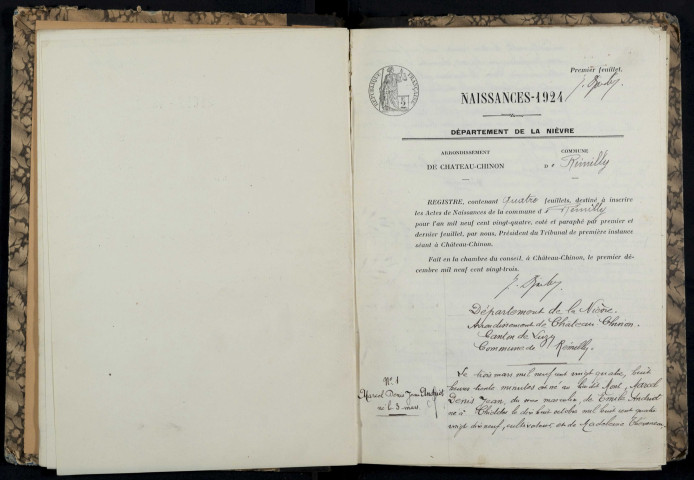 Premier feuillet.
RÉPUBLIQUE FRANÇAISE
NAISSANCES-1924
DÉPARTEMENT DE LA NIÈVRE
ARRONDISSEMENT
DE CHATEAU-CHINON
COMMUNE
D e Rémilly
REGISTRE, contenant quatre feuillets, destiné à inscrire
les Actes de Naissances de la commune d e Rémilly
pour l'an mil neuf cent vingt-quatre, coté et paraphé par premier et
dernier feuillet, par nous, Président du Tribunal de première instance
séant à Château-Chinon.
Fait en la chambre du conseil, à Château-Chinon, le premier dé-
cembre mil neuf cent vingt-trois.
Département de la Nièvre.
Arrondissement de Château Chinon.
Canton de Luzy
Commune de Rémilly.
N° 1
Marcel Denis Jean
né le 3 mars
Le trois mars mil neuf cent vingt quatre, huit
heures trente minutes est né Marcel
Denis Jean, du sexe masculin, de
né à le dix huit octobre mil huit cent quatre
vingt dix neuf, cultivateur et de Madeleine